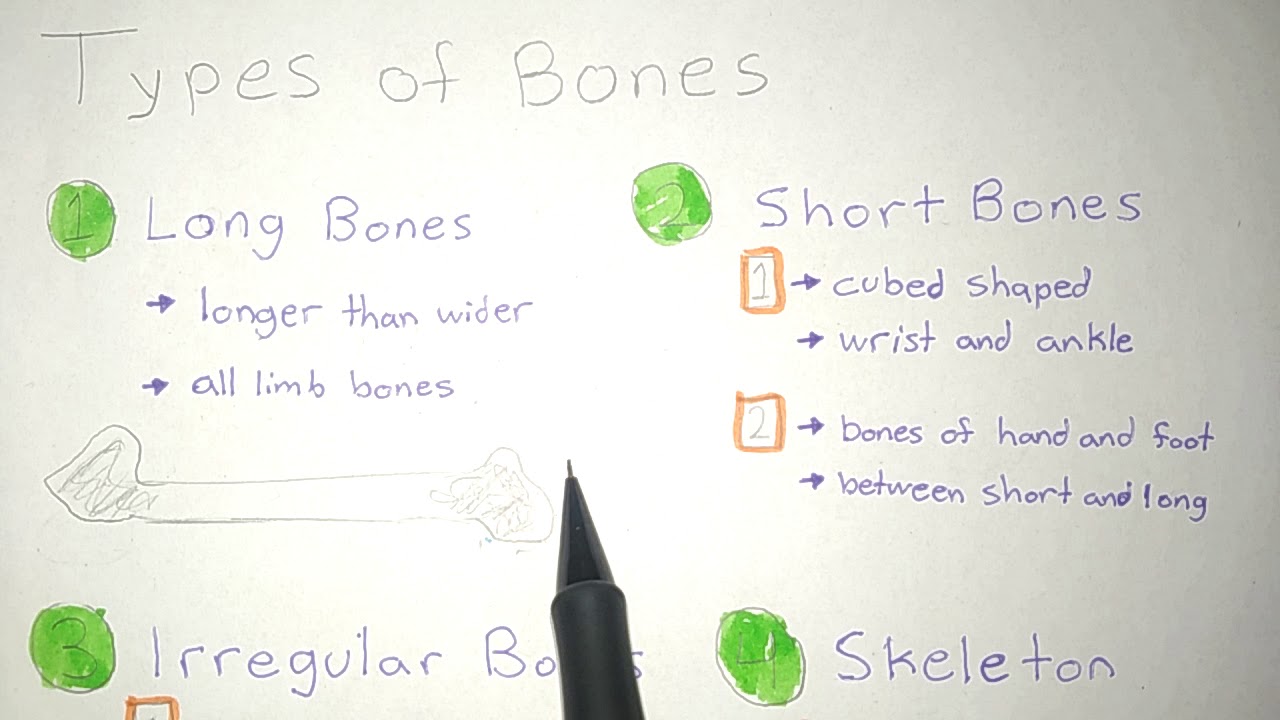 Types of Bones
1 Long Bones
→ longer than wider
→ all limb bones
2 Short Bones
1 → cubed shaped
→ wrist and ankle
2 → bones of hand and foot
→ between short and long
3 Irregular
4 Skeleton